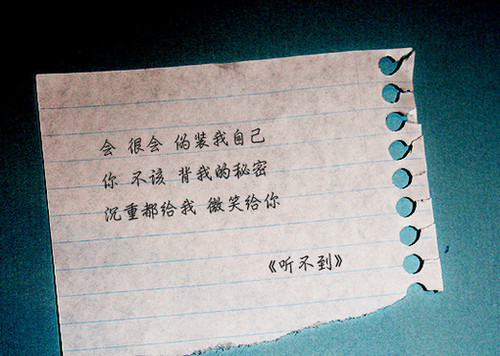 会 很会 伪装我自己
你 不该 背我的秘密
沉重都给我 微笑给你
《听不到》